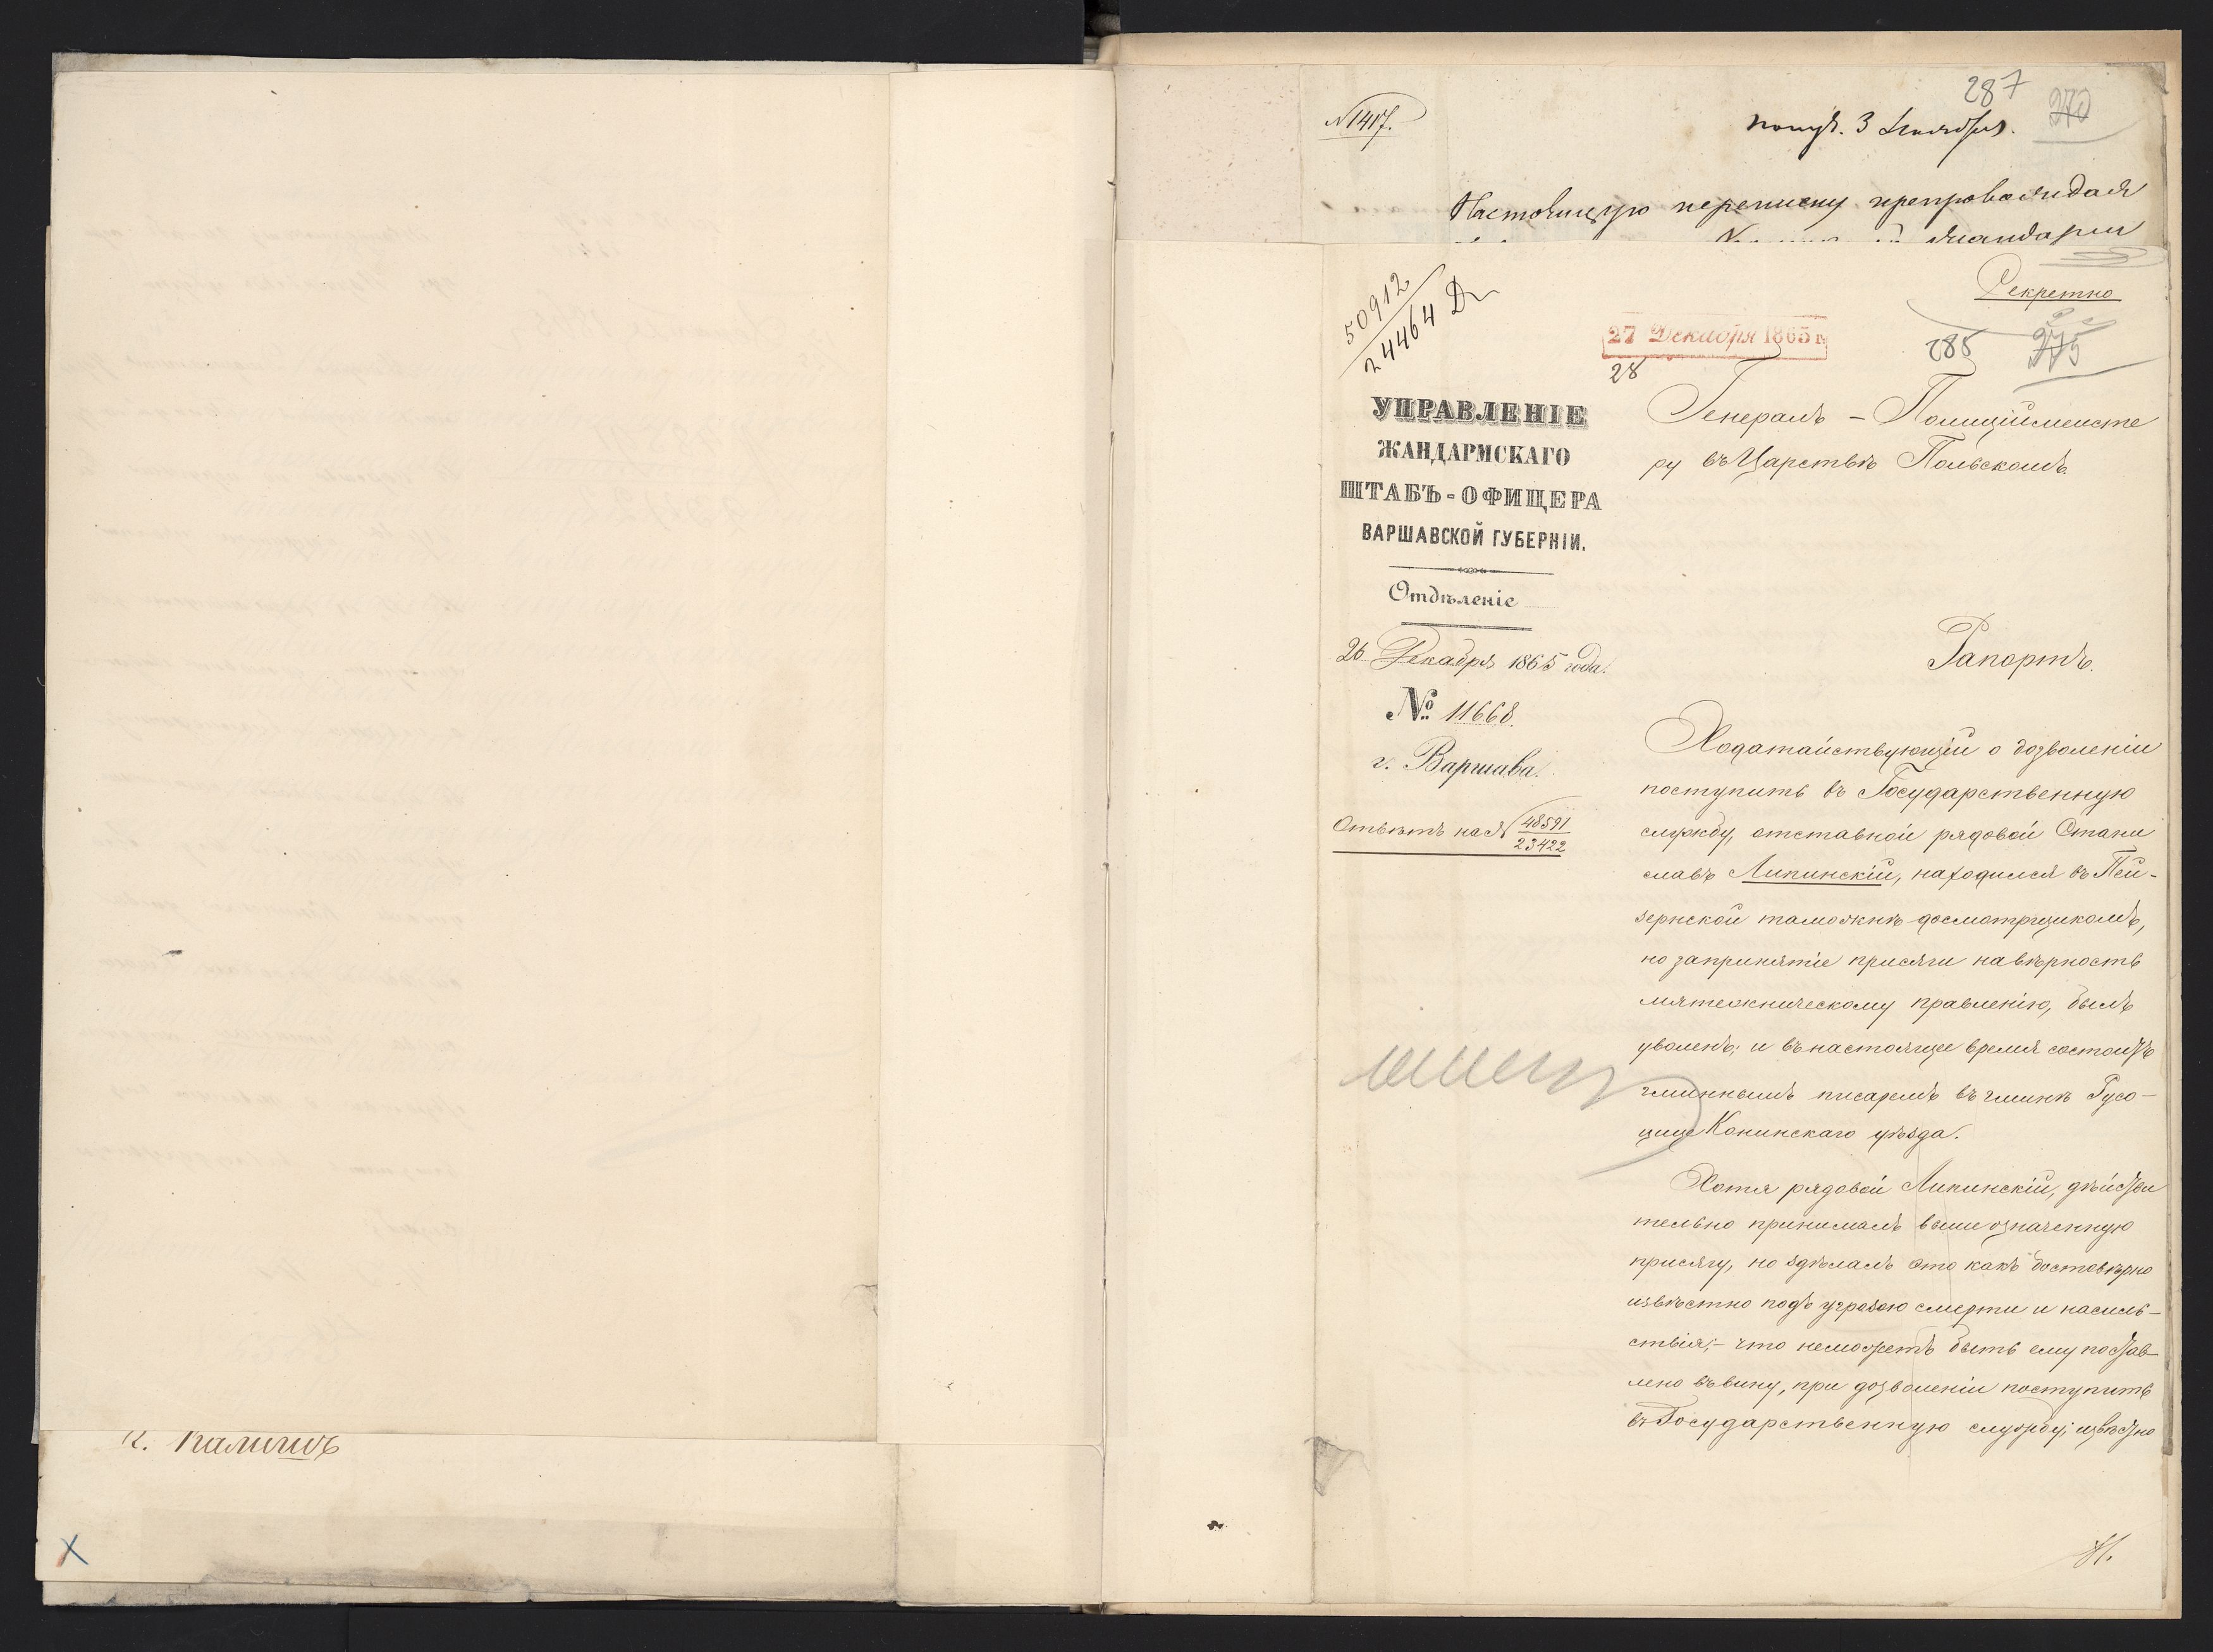 г. Калишъ
287
270
№ 1417.
получ. 3 Декабря.
Настоящую переписку препровождая
жандармс
Секретно
50912
24464 Д
27 Декабря 1865 г.
28
285
275
УПРАВЛЕНІЕ
ЖАНДАРМСКАГО
ШТАБЪ-ОФИЦЕРА
ВАРШАВСКОЙ ГУБЕРНІИ.
Отдѣленіе
26 Декабря 1865 года.
№ 11668.
г. Варшава.
Отвѣтъ на № 48591
23422
Генералъ – Полиціймейсте
ру въ Царствѣ Польскомъ.
Рапортъ.
Ходатайствующій о дозволеніи
поступить въ Государственную
службу, отставной рядовой Стани
славъ Липинскій, находился въ Пей-
зернской таможнѣ досмотрщикомъ,
но за принятіе присяги на вѣрность
мятежническому правленію, былъ
уволенъ; и въ настоящее время состоитъ
гминнымъ писаремъ въ гминѣ Русо-
цице Конинскаго уѣзда.
Хотя рядовой Липинскій, дѣйстви
тельно принималъ вышеозначенную
присягу, но здѣлалъ это какъ достовѣрно
извѣстно подъ угрозою смерти и насиль-
ствія;– что неможетъ быть ему постав
лено въ вину, при дозволеніи поступить
въ Государственную службу; извѣстно